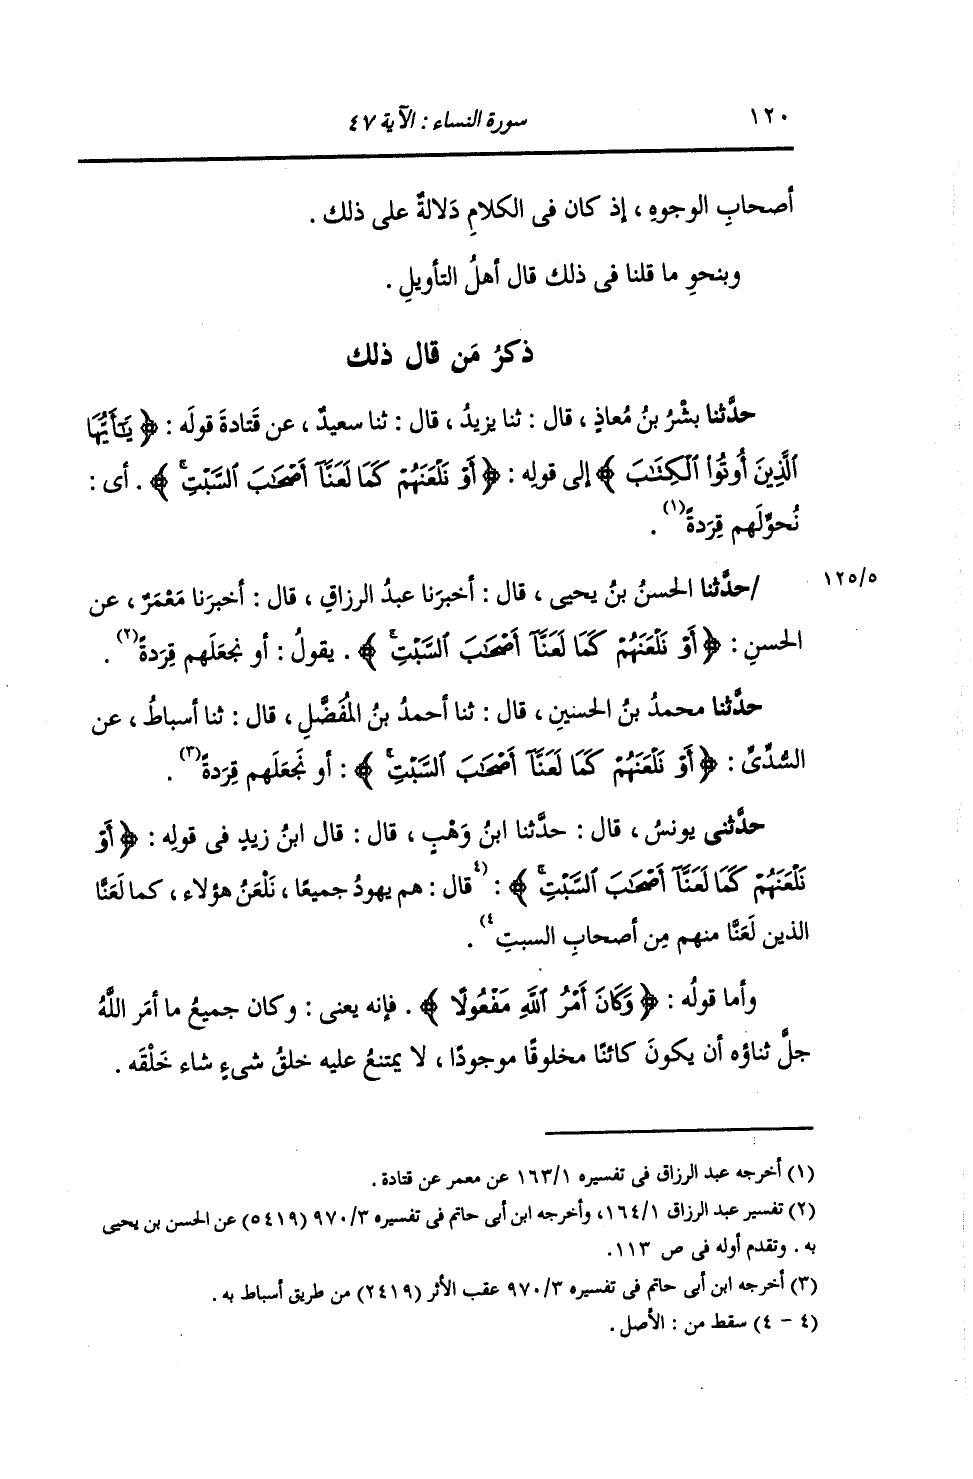 ١٢٠ سورة النساء : الآية ٤٧
أصحابِ الوجوهِ ، إذ كان فى الكلامِ دَلالةٌ على ذلك .
وبنحوِ ما قلنا فى ذلك قال أهلُ التأويلِ .
ذكرُ مَن قال ذلك
حدَّثنا بشْرُ بنُ مُعاذٍ ، قال : ثنا يزيدُ ، قال : ثنا سعيدٌ ، عن قَتادةَ قولَه : ﴿ يَٰٓأَيُّهَا
ٱلَّذِينَ أُوتُوا۟ ٱلْكِتَٰبَ ﴾ إلى قولِه : ﴿ أَوْ نَلْعَنَهُمْ كَمَا لَعَنَّآ أَصْحَٰبَ ٱلسَّبْتِۚ ﴾ . أى :
نُحوِّلَهم قِرَدةً(١) .
١٢٥/٥ /حدَّثنا الحسنُ بنُ يحيى ، قال : أخبرَنا عبدُ الرزاقِ ، قال : أخبرَنا مَعْمَرٌ ، عن
الحسنِ : ﴿ أَوْ نَلْعَنَهُمْ كَمَا لَعَنَّآ أَصْحَٰبَ ٱلسَّبْتِۚ ﴾ . يقولُ : أو نجعَلَهم قِرَدةً(٢) .
حدَّثنا محمدُ بنُ الحسينِ ، قال : ثنا أحمدُ بنُ المُفَضَّلِ ، قال : ثنا أسباطُ ، عن
السُّدِّىِّ : ﴿ أَوْ نَلْعَنَهُمْ كَمَا لَعَنَّآ أَصْحَٰبَ ٱلسَّبْتِۚ ﴾ : أو نَجعَلَهم قِرَدةً(٣) .
حدَّثنى يونسُ ، قال : حدَّثنا ابنُ وَهْبٍ ، قال : قال ابنُ زيدٍ فى قولِه : ﴿ أَوْ
نَلْعَنَهُمْ كَمَا لَعَنَّآ أَصْحَٰبَ ٱلسَّبْتِۚ ﴾ : (٤قال : هم يهودُ جميعًا ، نَلْعَنُ هؤلاء ، كما لَعَنَّا
الذين لَعَنَّا منهم مِن أصحابِ السبتِ٤) .
وأما قولُه : ﴿ وَكَانَ أَمْرُ ٱللَّهِ مَفْعُولًا ﴾ . فإنه يعنى : وكان جميعُ ما أمَر اللَّهُ
جلَّ ثناؤه أن يكونَ كائنًا مخلوقًا موجودًا ، لا يمتنعُ عليه خلقُ شىءٍ شاء خَلْقَه .
(١) أخرجه عبد الرزاق فى تفسيره ١٦٣/١ عن معمر عن قتادة .
(٢) تفسير عبد الرزاق ١٦٤/١، وأخرجه ابن أبى حاتم فى تفسيره ٩٧٠/٣ (٥٤١٩) عن الحسن بن يحيى
به . وتقدم أوله فى ص ١١٣.
(٣) أخرجه ابن أبى حاتم فى تفسيره ٩٧٠/٣ عقب الأثر (٢٤١٩) من طريق أسباط به .
(٤ - ٤) سقط من : الأصل .